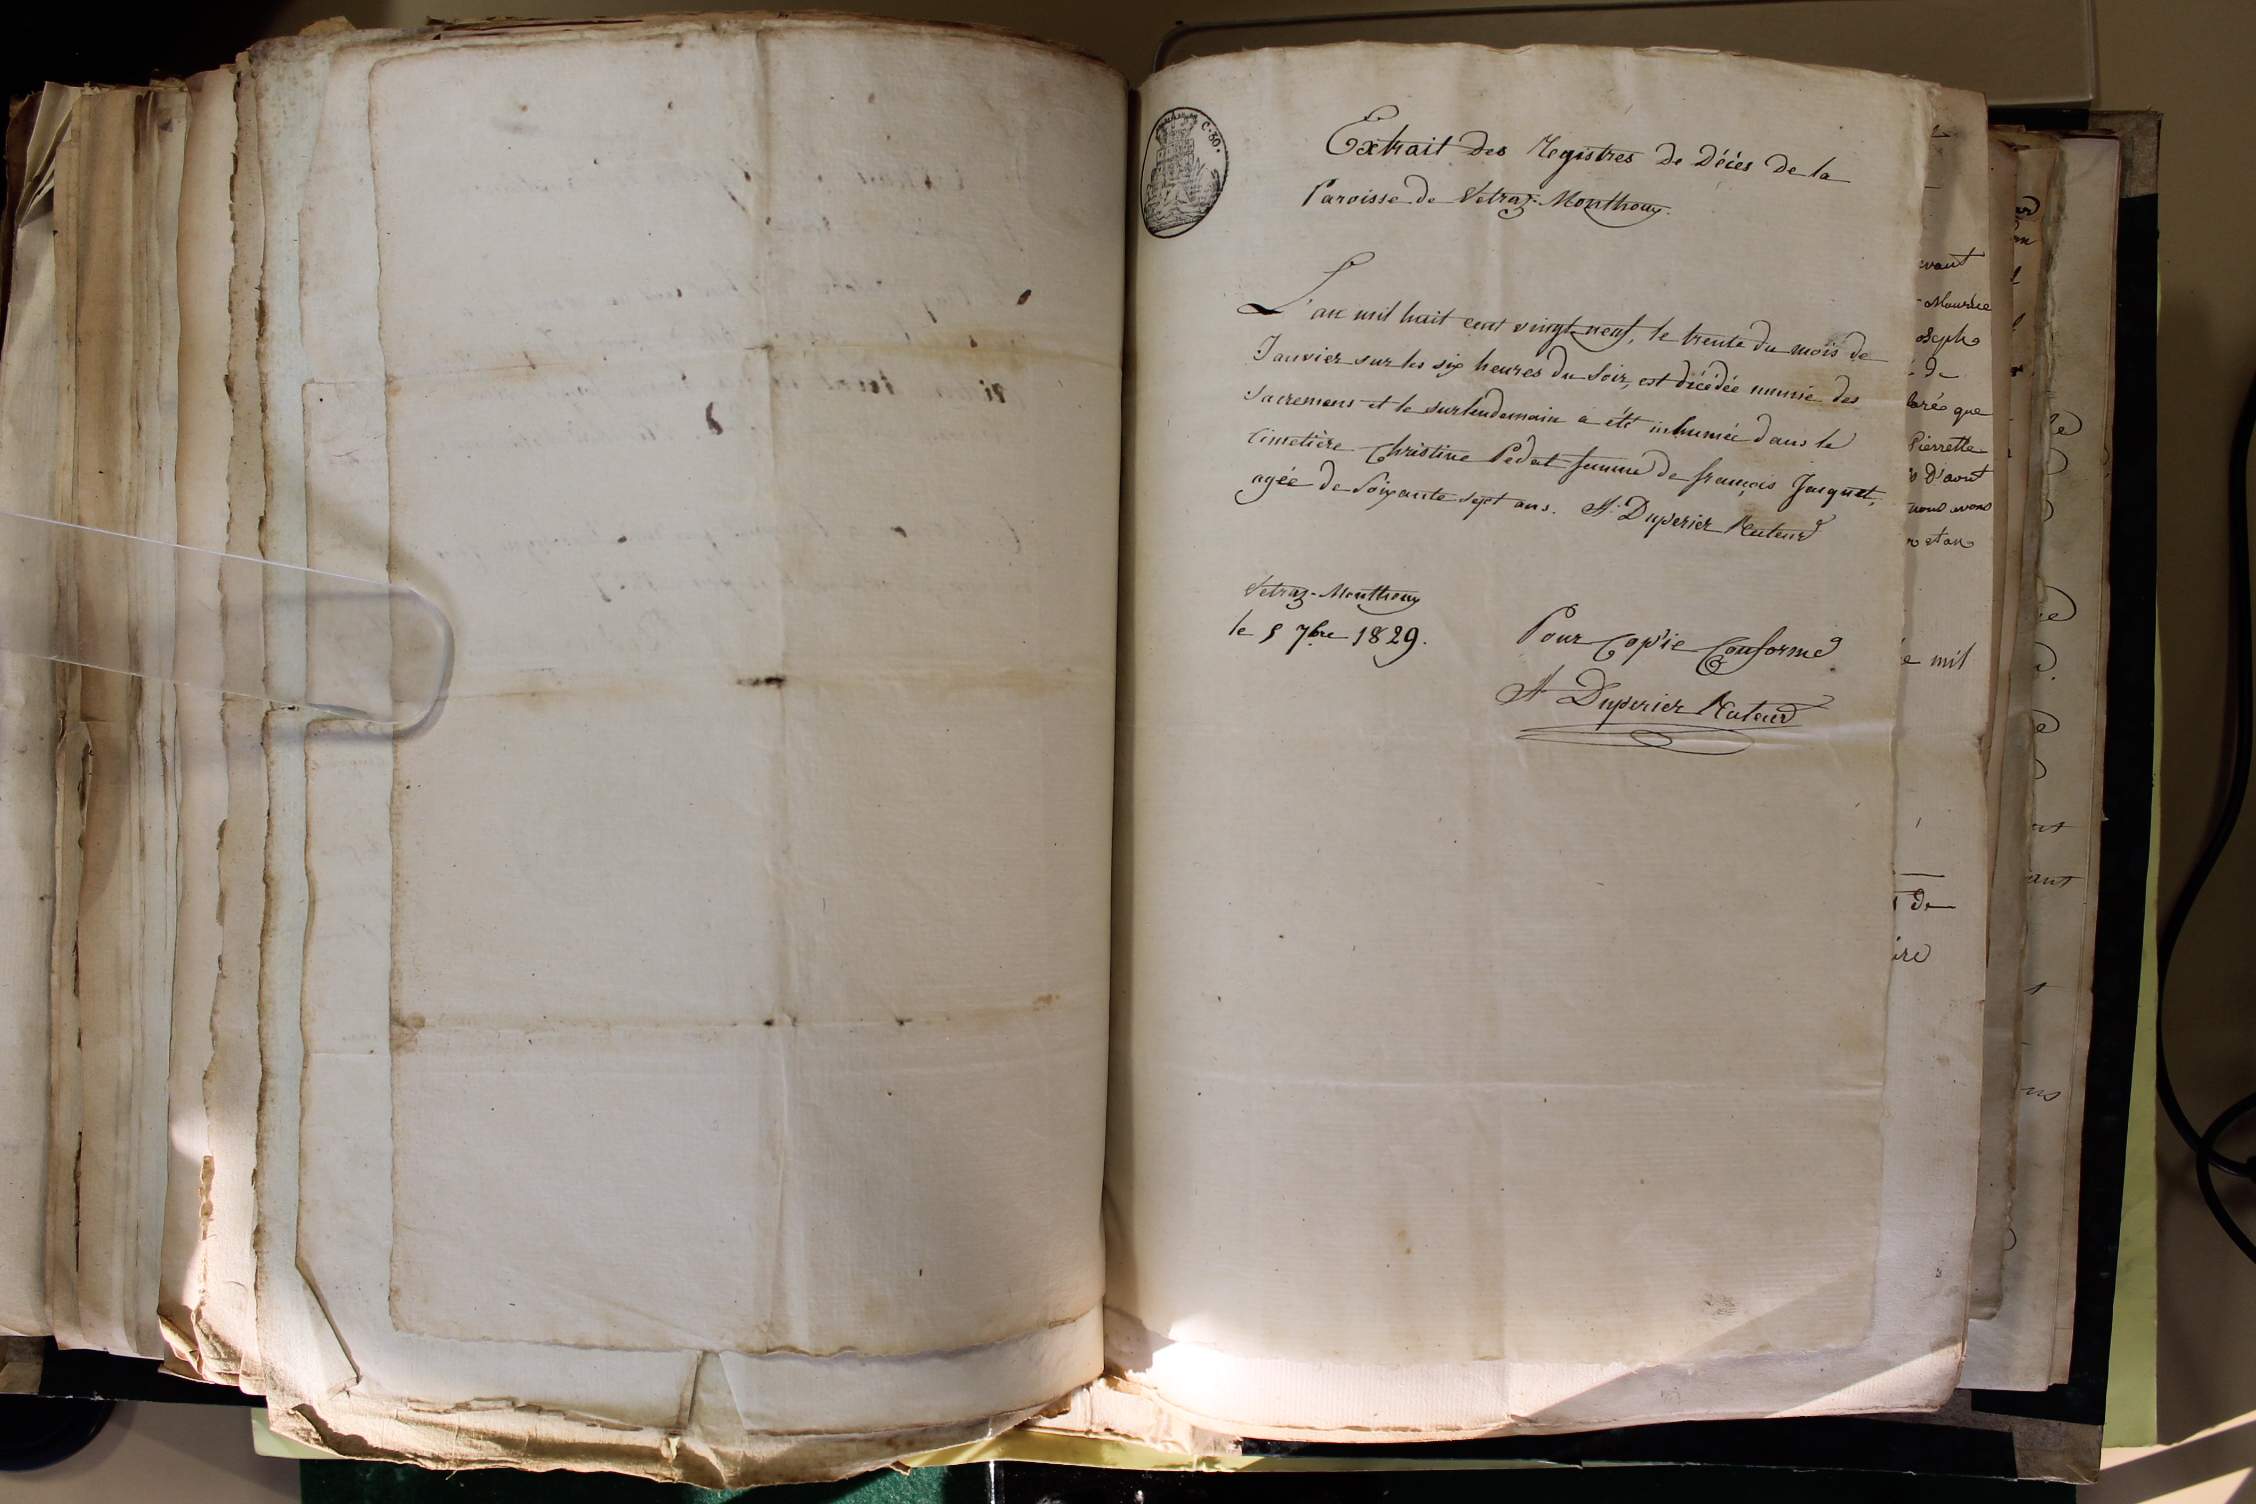 C. 30.
Extrait des Registres de Décès de la
Paroisse de Vetraz-Monthoux.
L'an mil huit cent vingt neuf, le trente du mois de
Janvier sur les six heures du soir, est décédée munie des
sacremens et le surlendemain a été inhumée dans le
cimetière Christine Pedat femme de françois Jacquet,
agée de soixante sept ans. A. Duperier Recteur
Vetraz-Monthoux
le 5 7bre 1829.
Pour Copie Conforme
A Duperier Recteur
Maurice
oseph
de
que
Pierrette
D'avril
nous avons
et on
mil
de